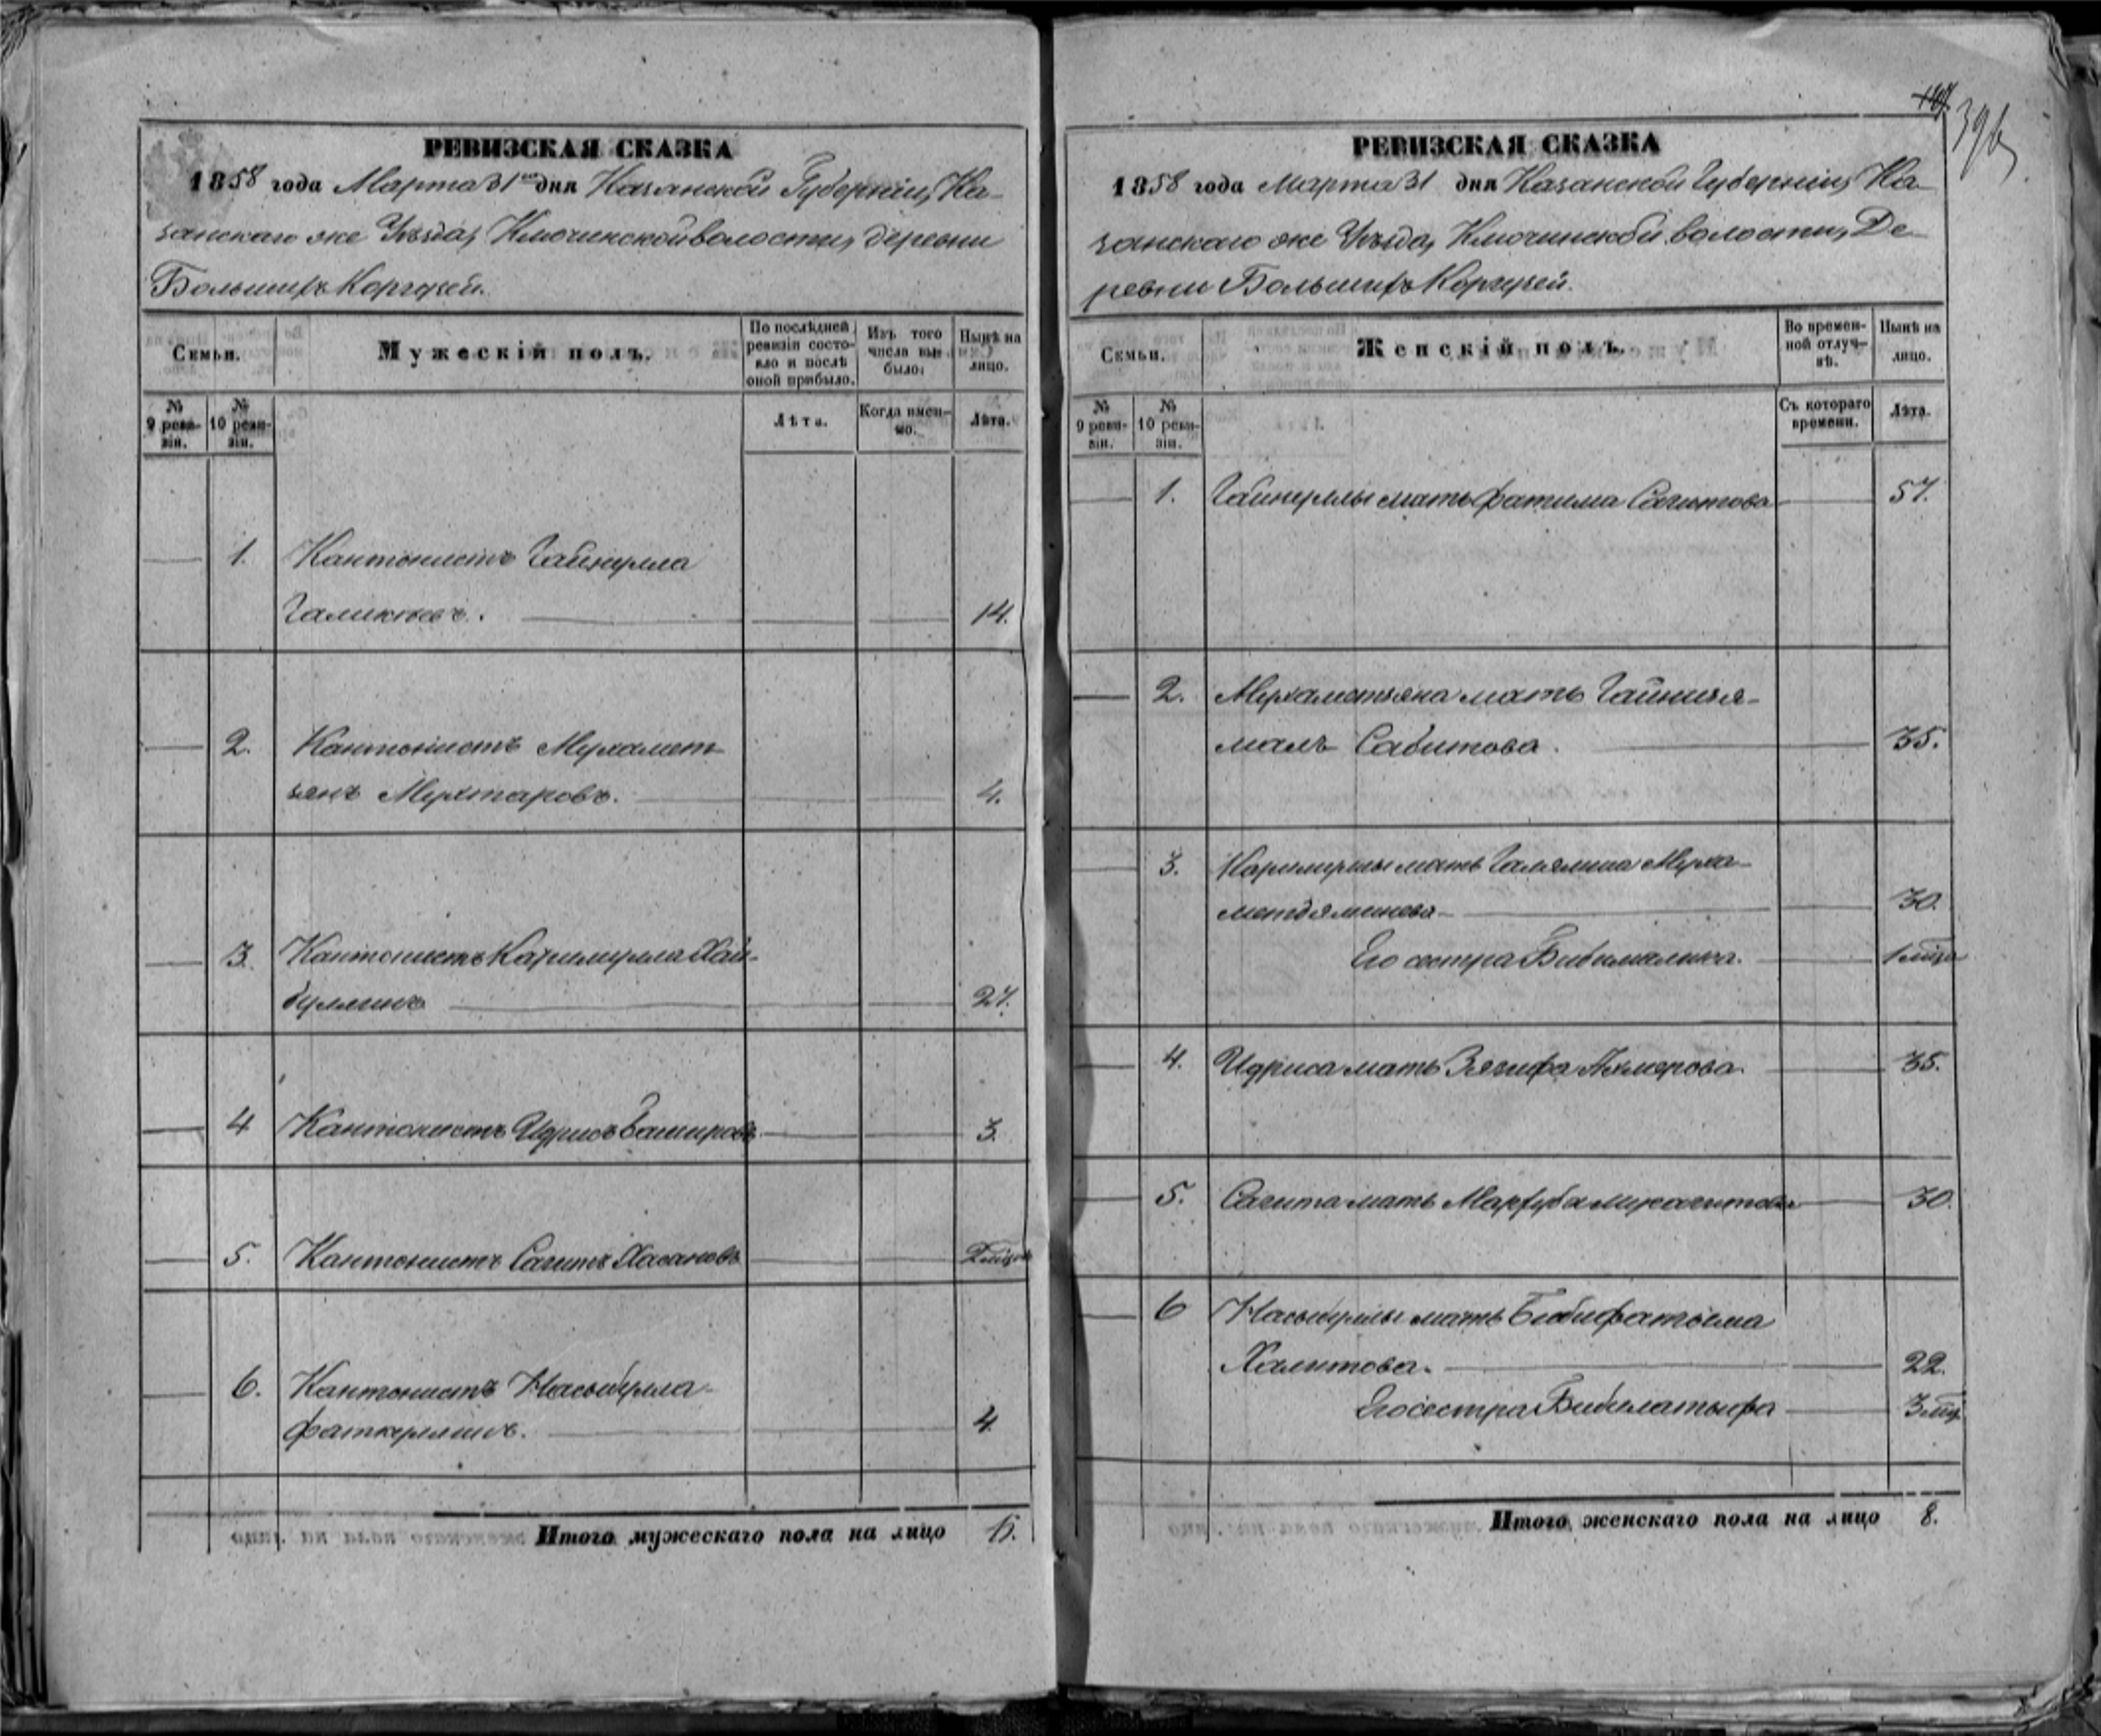 РЕВИЗСКАЯ СКАЗКА
1858 года Марта 31го дня Казанской Губерніи, Ка-
занскаго же Уѣзда, Ключинской волости, деревни
Большихъ Коргузей.
Семьи.
Мужескій полъ.
По послѣдней ревизіи состояло и послѣ оной прибыло.
Изъ того числа выбыло:
Нынѣ на лицо.
№ 9 ревизіи.
№ 10 ревизіи.
Лѣта.
Когда именно.
Лѣта.
1. Кантонистъ Гайнулла
Галикѣевъ. 14.
2. Кантонистъ Мухамет-
зянъ Мухтаровъ. 4.
3. Кантонистъ Каримулла Хай-
буллинъ 27.
4 Кантонистъ Идрисъ Башировъ 3.
5. Кантонистъ Сагитъ Хасановъ
6. Кантонистъ Насыбулла
Фаткуллинъ. 4.
Итого мужескаго пола на лицо 6.
396
РЕВИЗСКАЯ СКАЗКА
1858 года Марта 31 дня Казанской Губерніи, Ка-
занскаго же Уѣзда, Ключинской волости, Де-
ревни Большихъ Коргузей.
Семьи.
Женскій полъ.
Во временной отлучкѣ.
Нынѣ на лицо.
№ 9 ревизіи.
№ 10 ревизіи.
Съ котораго времени.
Лѣта.
1. Гайнуллы мать Фатима Сагитова 57.
2. Мухаметзяна мать Гайнизя-
малъ Сабитова. 35.
3. Каримуллы мать Муха-
метдяминова 30.
Его сестра Бибималика. 1 мѣся
4. Идриса мать Зягифа Ахмерова. 35.
5. Сагита мать 30.
6 Насыбуллы мать Бибифатыма
Халитова. 22.
Его сестра Бибилатыфа 3 мѣ
Итого женскаго пола на лицо 8.